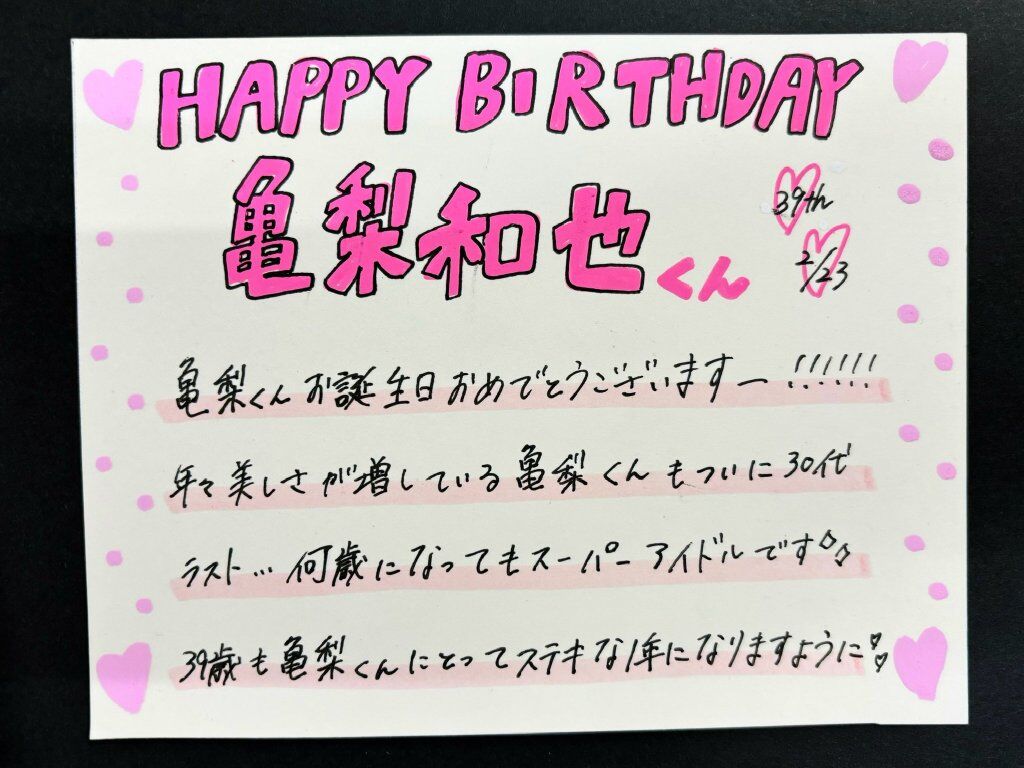 HAPPY BIRTHDAY
亀梨和也くん
39th
2/23
亀梨くんお誕生日おめでとうございますー!!!!!!
年々美しさが増している亀梨くんもついに30代
ラスト…何歳になってもスーパーアイドルです♪♪
39歳も亀梨くんにとってステキな1年になりますように♡♡